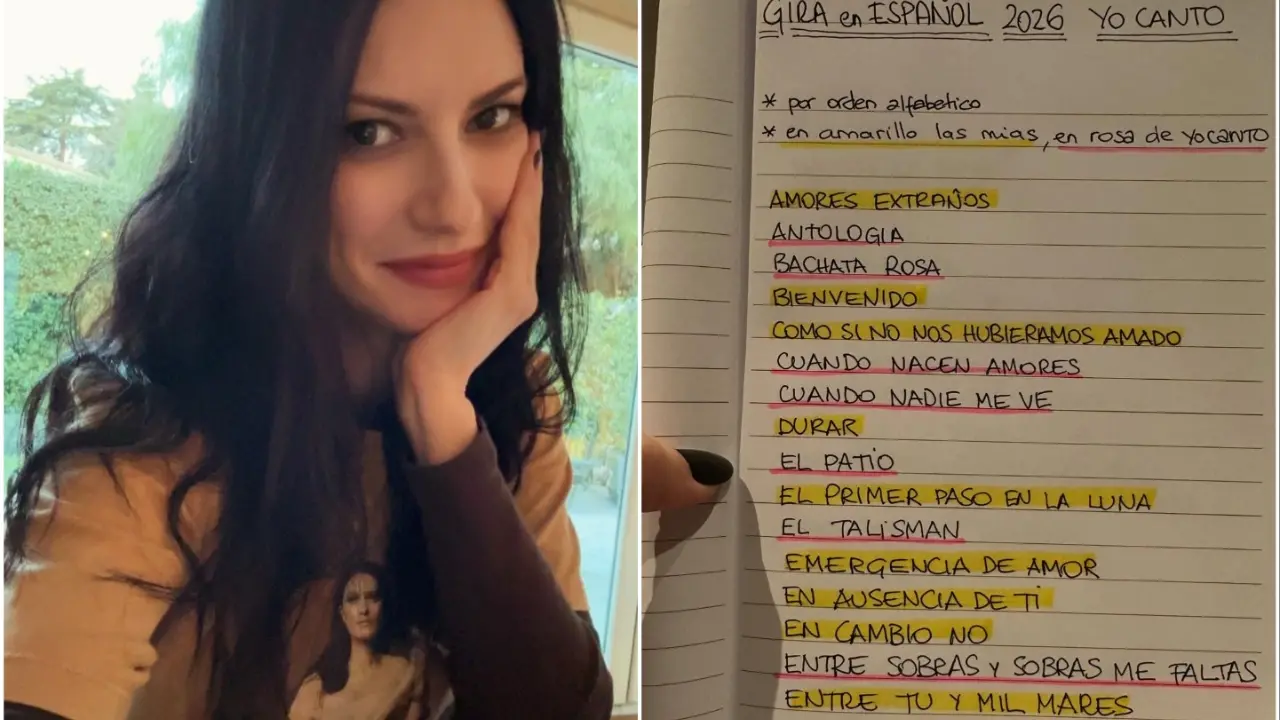 GIRA en ESPAÑOL 2026 YO CANTO
* por orden alfabetico
* en amarillo las mias, en rosa de YOCANTO
AMORES EXTRAÑOS
ANTOLOGIA
BACHATA ROSA
BIENVENIDO
COMO SI NO NOS HUBIERAMOS AMADO
CUANDO NACEN AMORES
CUANDO NADIE ME VE
DURAR
EL PATIO
EL PRIMER PASO EN LA LUNA
EL TALISMAN
EMERGENCIA DE AMOR
EN AUSENCIA DE TI
EN CAMBIO NO
ENTRE SOBRAS Y SOBRAS ME FALTAS
ENTRE TU Y MIL MARES